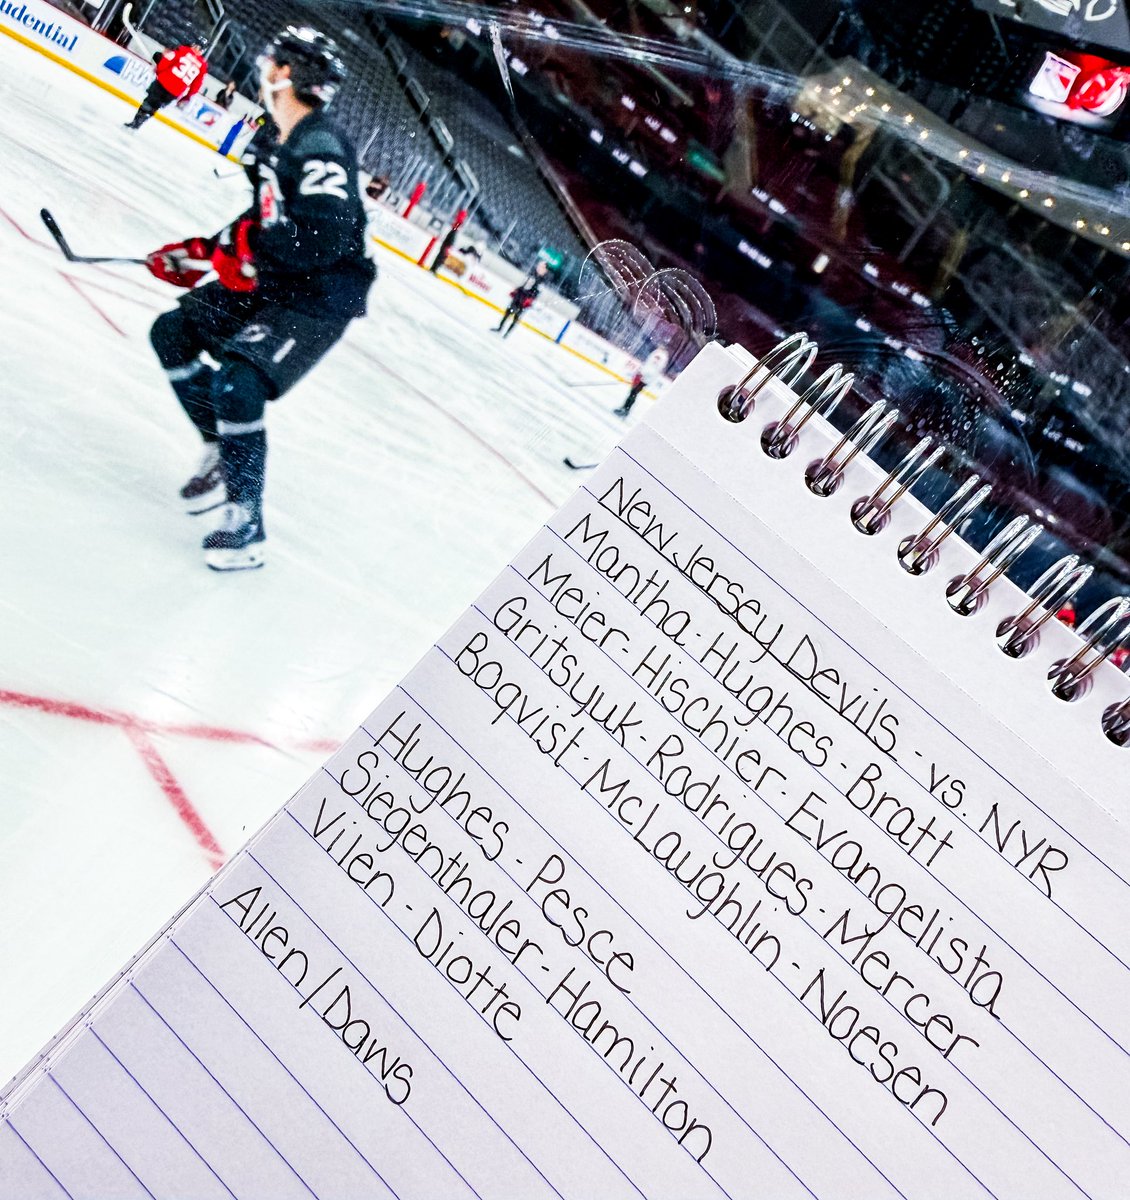 Prudential
39
22
New Jersey Devils - vs. NYR
Mantha - Hughes - Bratt
Meier - Hischier - Evangelista
Gritsyuk - Rodrigues - Mercer
Boqvist - McLaughlin - Noesen
Hughes - Pesce
Siegenthaler - Hamilton
Vilen - Diotte
Allen / Daws